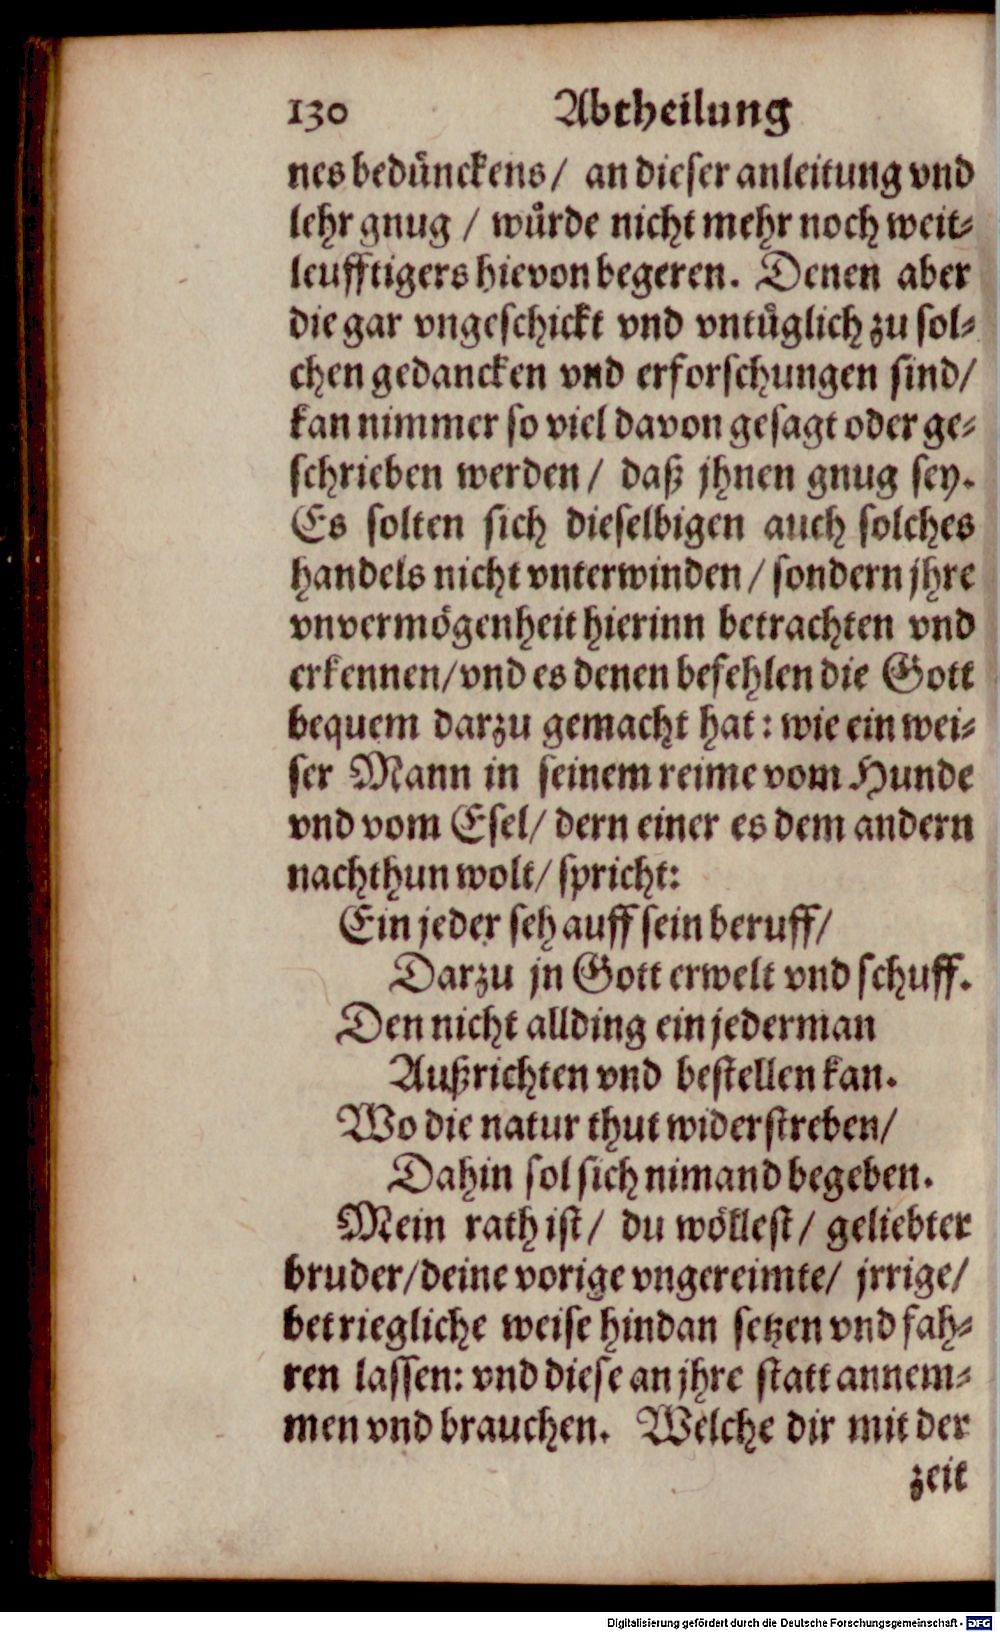 130 Abtheilung
nes bedünckens/ an dieser anleitung vnd
lehr gnug / wuͤrde nicht mehr noch weit⸗
leufftigers hievon begeren. Denen aber
die gar vngeschickt vnd vntuͤglich zu sol⸗
chen gedancken vnd erforschungen sind/
kan nimmer so viel davon gesagt oder ge⸗
schrieben werden/ daß jhnen gnug sey.
Es solten sich dieselbigen auch solches
handels nicht vnterwinden/ sondern jhre
vnvermögenheit hierinn betrachten vnd
erkennen/ vnd es denen befehlen die Gott
bequem darzu gemacht hat: wie ein wei⸗
ser Mann in seinem reime vom Hunde
vnd vom Esel/ dern einer es dem andern
nachthun wolt/ spricht:
Ein jeder seh auff sein beruff/
Darzu jn Gott erwelt vnd schuff.
Den nicht allding ein jederman
Außrichten vnd bestellen kan.
Wo die natur thut widerstreben/
Dahin sol sich nimand begeben.
Mein rath ist/ du wöllest/ geliebter
bruder/ deine vorige vngereimte/ jrrige/
betriegliche weise hindan setzen vnd fah⸗
ren lassen: vnd diese an jhre statt annem⸗
men vnd brauchen. Welche dir mit der
zeit
Digitalisierung gefördert durch die Deutsche Forschungsgemeinschaft - DFG